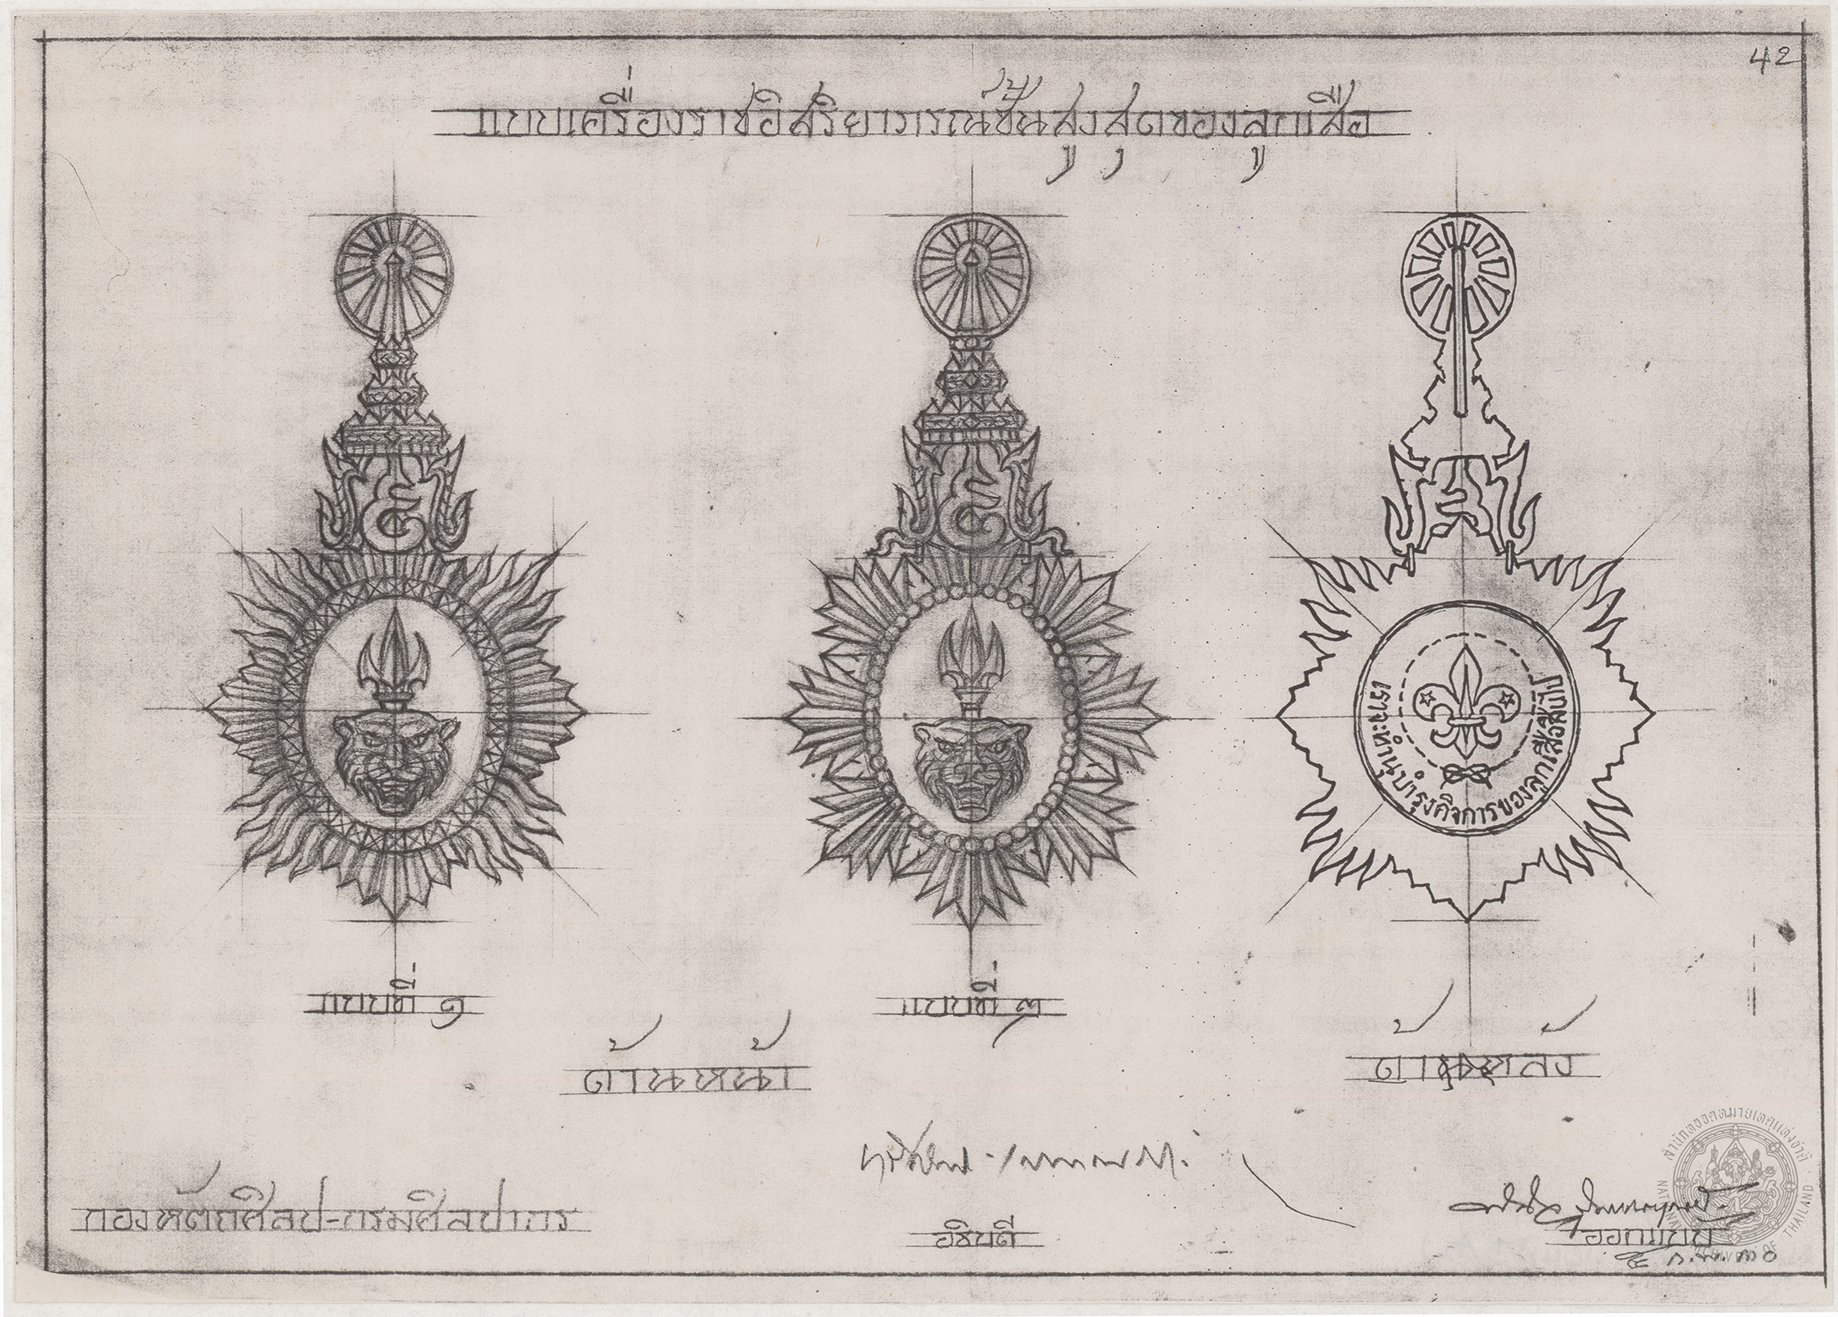 42
แบบเครื่องราชอิสริยาภรณ์ชั้นสูงสุดของลูกเสือ
เราจะทำนุบำรุงกิจการของลูกเสือสืบไป
แบบที่ ๑
แบบที่ ๓
ด้านหน้า
ด้านหลัง
กองหัตถศิลป-กรมศิลปากร
อธิบดี
ออกแบบ
๕ ก.พ. ๓๐
สำนักหอจดหมายเหตุแห่งชาติ
NATIONAL ARCHIVES OF THAILAND